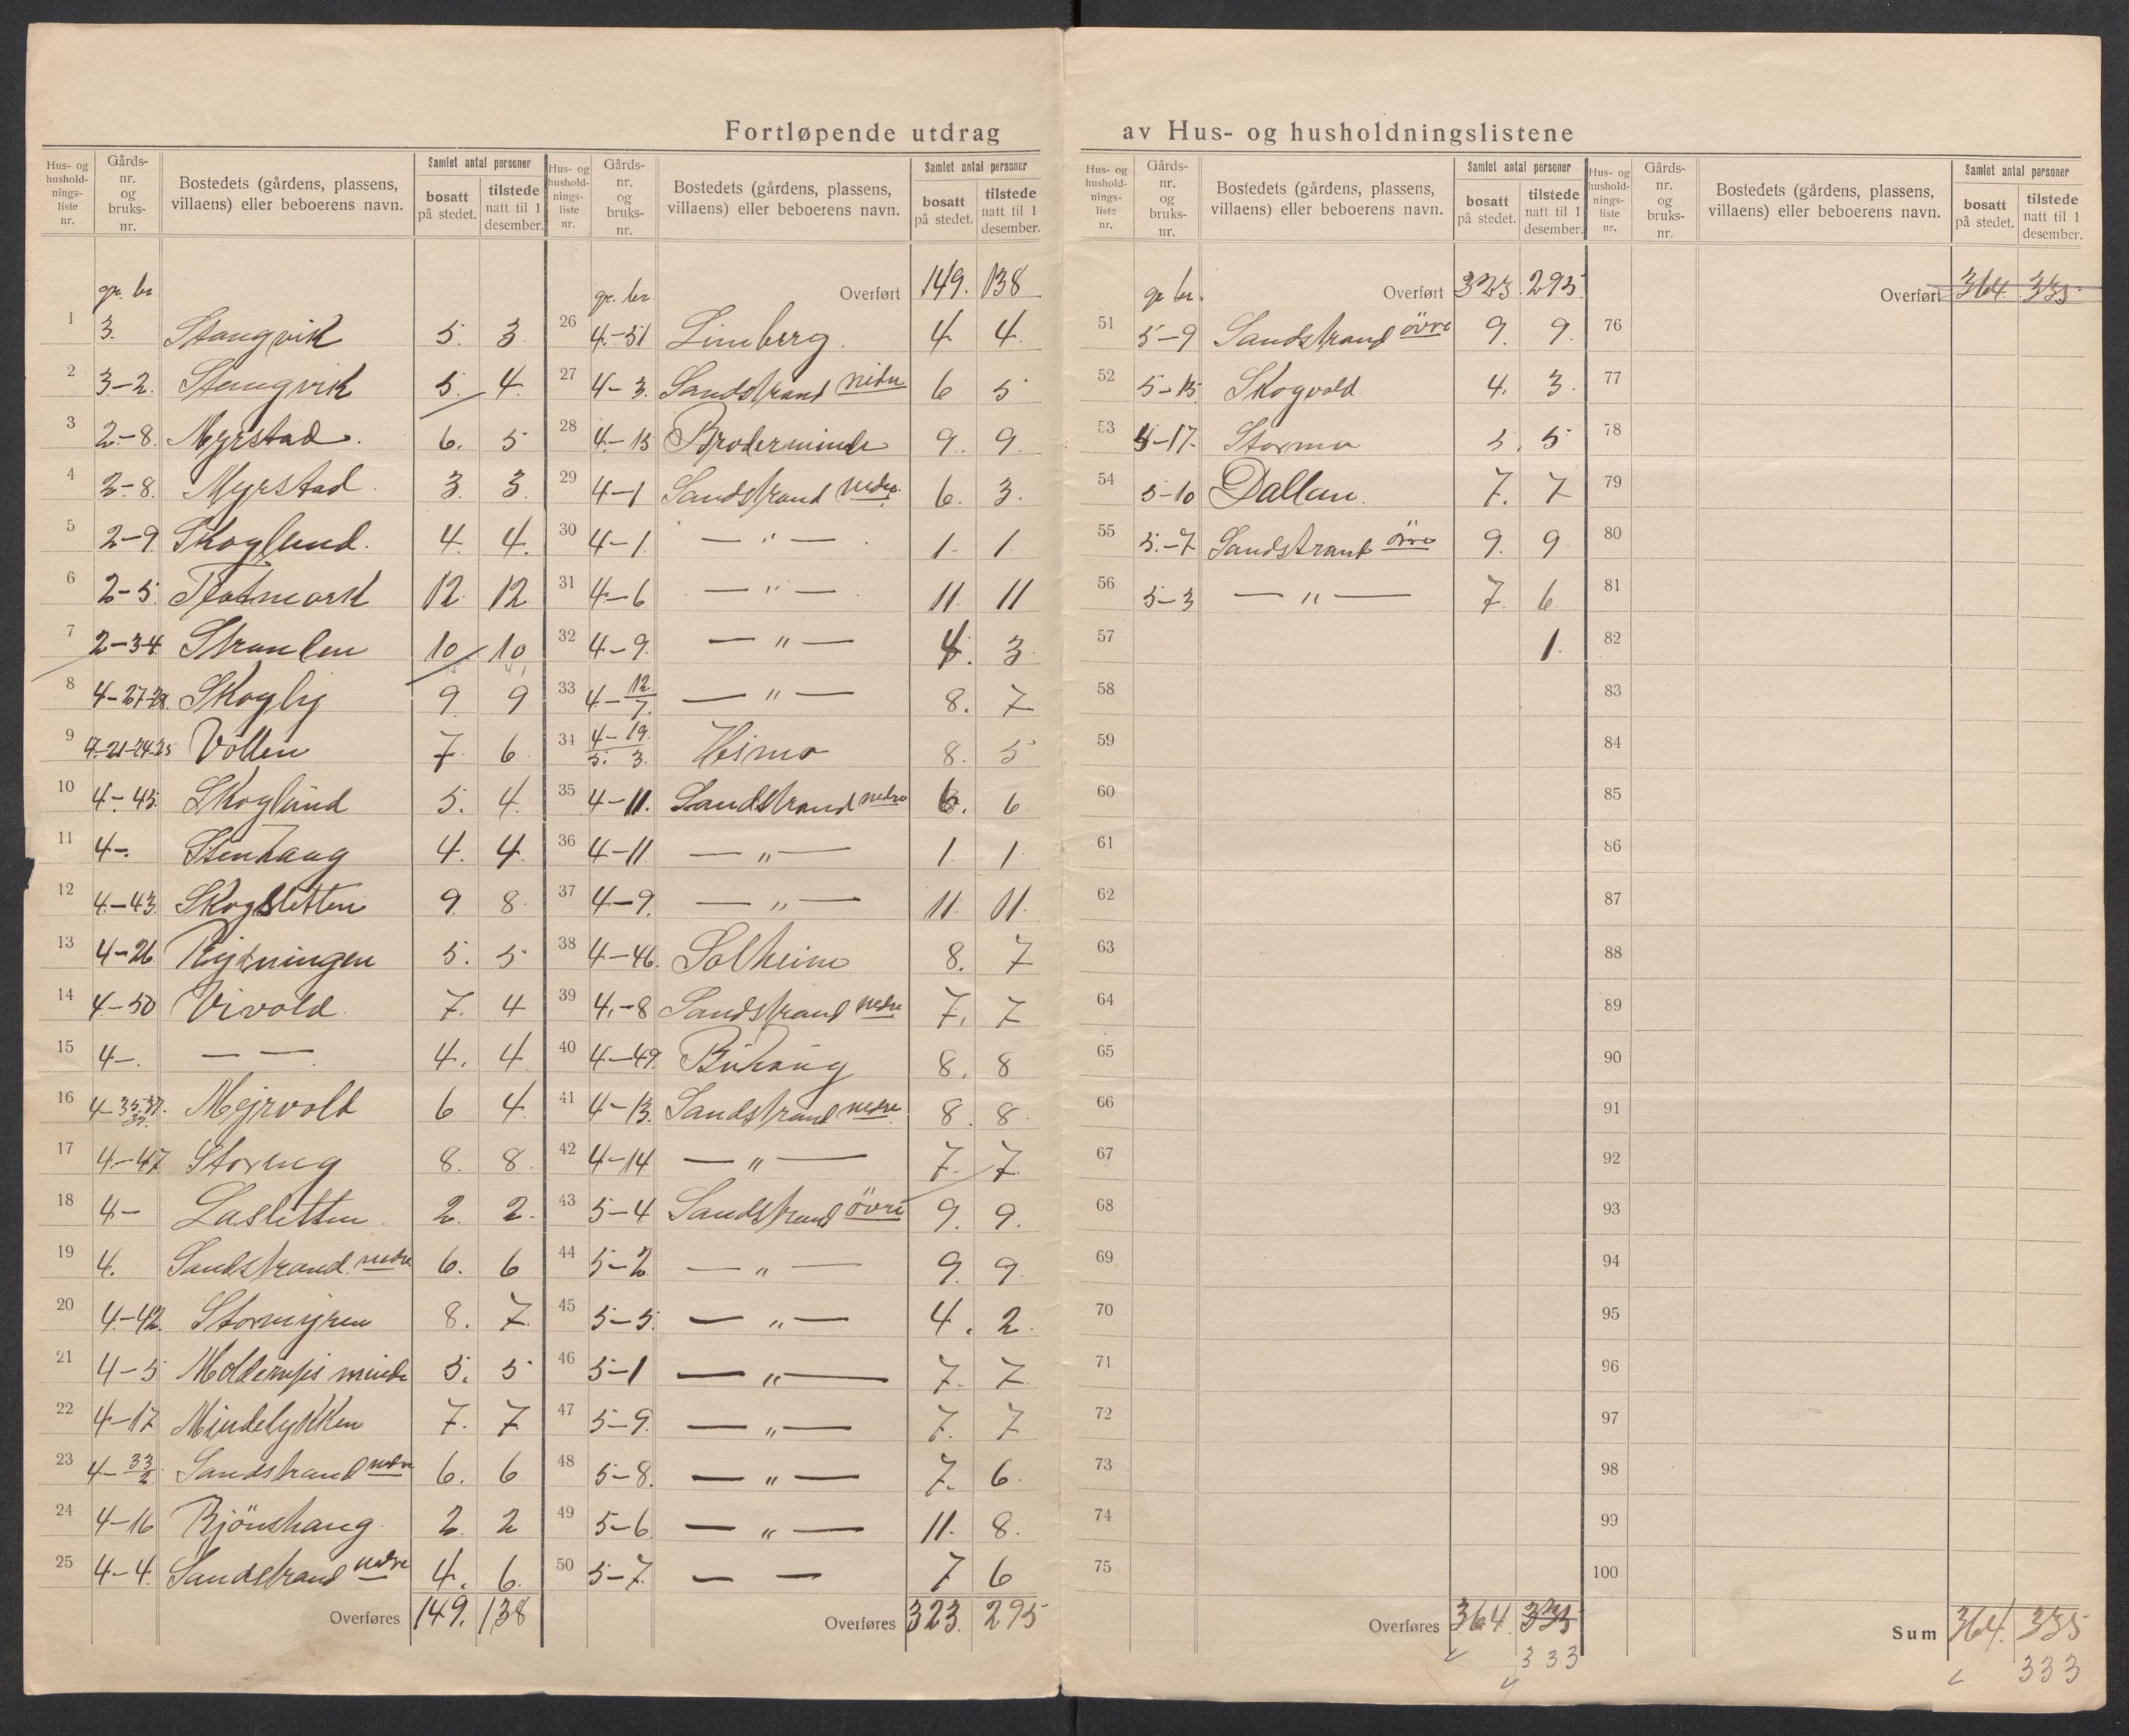 Fortløpende utdrag av Hus- og husholdningslistene
Hus- og hushold-nings-liste nr. Gårds-nr. og bruks-nr. Bostedets (gårdens, plassens, villaens) eller beboerens navn. Samlet antal personer bosatt på stedet. tilstede natt til 1 desember.
gr. br
1 3. Stangvik 5. 3
2 3-2. Stangvik 5. 4
3 2-8. Myrstad. 6. 5
4 2-8. Myrstad. 3. 3
5 2-9 Skoglund. 4. 4.
6 2-5. Flatmark 12 12
7 2-34 Stranlen 10 10
8 4-27-28. Skogly 9 9
9 4-21-24-25 Vollen 7. 6
10 4-45. Skoglund 5. 4
11 4-. Stenhaug 4. 4
12 4-43. Skogsletten 9 8
13 4-26 Rydningen 5. 5
14 4-50 Vivold 7. 4
15 4-. — — 4. 4
16 4-35-37. Myrvold 6 4.
17 4-47 Storeng 8. 8
18 4- Lasletten. 2. 2.
19 4. Sandstrand nedre 6. 6
20 4-42. Stormyren 8. 7.
21 4-5 minde 5. 5
22 4-17 Mindelykken 7. 7
23 4-33/2 Sandstrand nedre 6. 6
24 4-16 Bjönshaug 2 2
25 4-4. Sandstrand nedre 4. 6.
Overføres 149. 138
Hus- og hushold-nings-liste nr. Gårds-nr. og bruks-nr. Bostedets (gårdens, plassens, villaens) eller beboerens navn. Samlet antal personer bosatt på stedet. tilstede natt til 1 desember.
gr. br. Overført 149. 138
26 4-51 Limberg. 4 4.
27 4-3. Sandstrand nedre 6 5
28 4-15 Broderminde 9. 9.
29 4-1 Sandstrand nedre. 6. 3.
30 4-1. — " — 1. 1.
31 4-6 — " — 11. 11
32 4-9. — " — 4. 3.
33 4-12/7. — " — 8. 7
34 4-19. 5. 3. Heimo 8. 5
35 4-11. Sandstrand nedre 6. 6
36 4-11 — " — 1. 1.
37 4-9. — " — 11. 11.
38 4-46. Solheim 8. 7
39 4.-8 Sandstrand nedre 7. 7
40 4-49. Buhaug 8. 8
41 4-13. Sandstrand nedre 8. 8.
42 4-14 — " — 7. 7.
43 5-4 Sandstrand övre 9. 9.
44 5-2 — " — 9. 9.
45 5-5. — " — 4. 2.
46 5-1 — " — 7. 7.
47 5-9. — " — 7. 7
48 5-8. — " — 7. 6.
49 5-6. — " — 11. 8.
50 5-7. — — 7 6
Overføres 323. 295
Hus- og hushold-nings-liste nr. Gårds-nr. og bruks-nr. Bostedets (gårdens, plassens, villaens) eller beboerens navn. Samlet antal personer bosatt på stedet. tilstede natt til 1 desember.
gr br. Overført 323. 295
51 5-9 Sandstrand övre 9. 9.
52 5-15. Skogvold. 4. 3.
53 5-17. Stormo 5. 5
54 5-10 Dallan. 7. 7
55 5.-7 Sandstrand övre 9. 9
56 5-3 — " — 7. 6
57 1.
58
59
60
61
62
63
64
65
66
67
68
69
70
71
72
73
74
75
Overføres 364. 335
333
Hus- og hushold-nings-liste nr. Gårds-nr. og bruks-nr. Bostedets (gårdens, plassens, villaens) eller beboerens navn. Samlet antal personer bosatt på stedet. tilstede natt til 1 desember.
Overført 364 335
76
77
78
79
80
81
82
83
84
85
86
87
88
89
90
91
92
93
94
95
96
97
98
99
100
Sum 364. 335
333